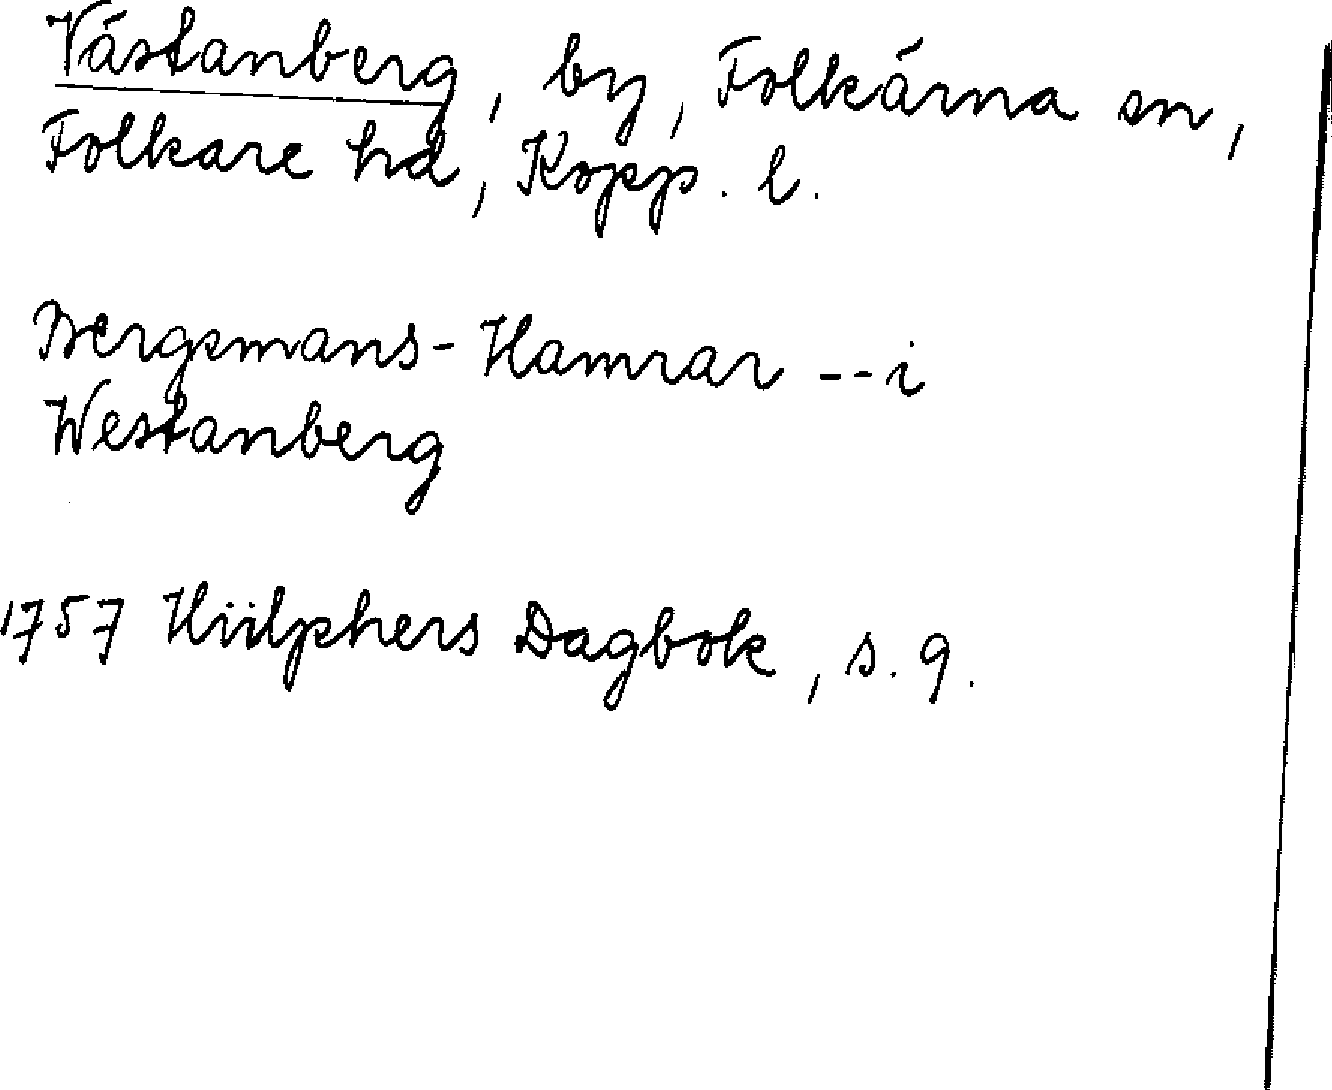 Västanberg, by, Folkärna sn,
Folkare hd, Kopp. l.
Bergsmans-Hamrar -- i
Westanberg
1757 Hülphers Dagbok, s. 9.